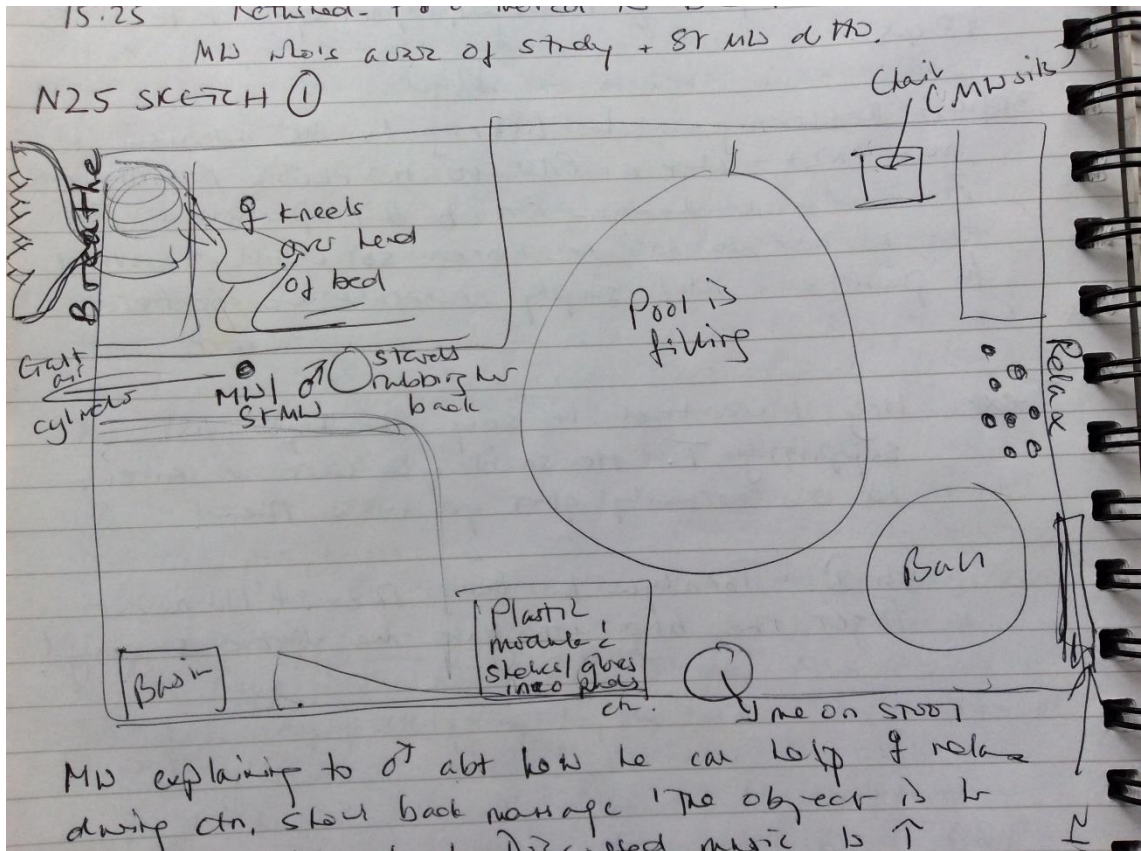 15.25
MW who's aware of study + ST MW ditto.
N25 SKETCH ①
Chair
(MW sits
Breathe
♀ kneels
over head
of bed
Pool is
filling
Relax
Gas +
air
cylinder
MW/
STMW
♂
stands
rubbing her
back
Ball
Plastic
module c̄
shelves/gloves
inco pads
etc.
Basin
me on STOOL
MW explaining to ♂ abt how he can help ♀ relax
during ctn. Slow back massage 'The object is to
music is ↑